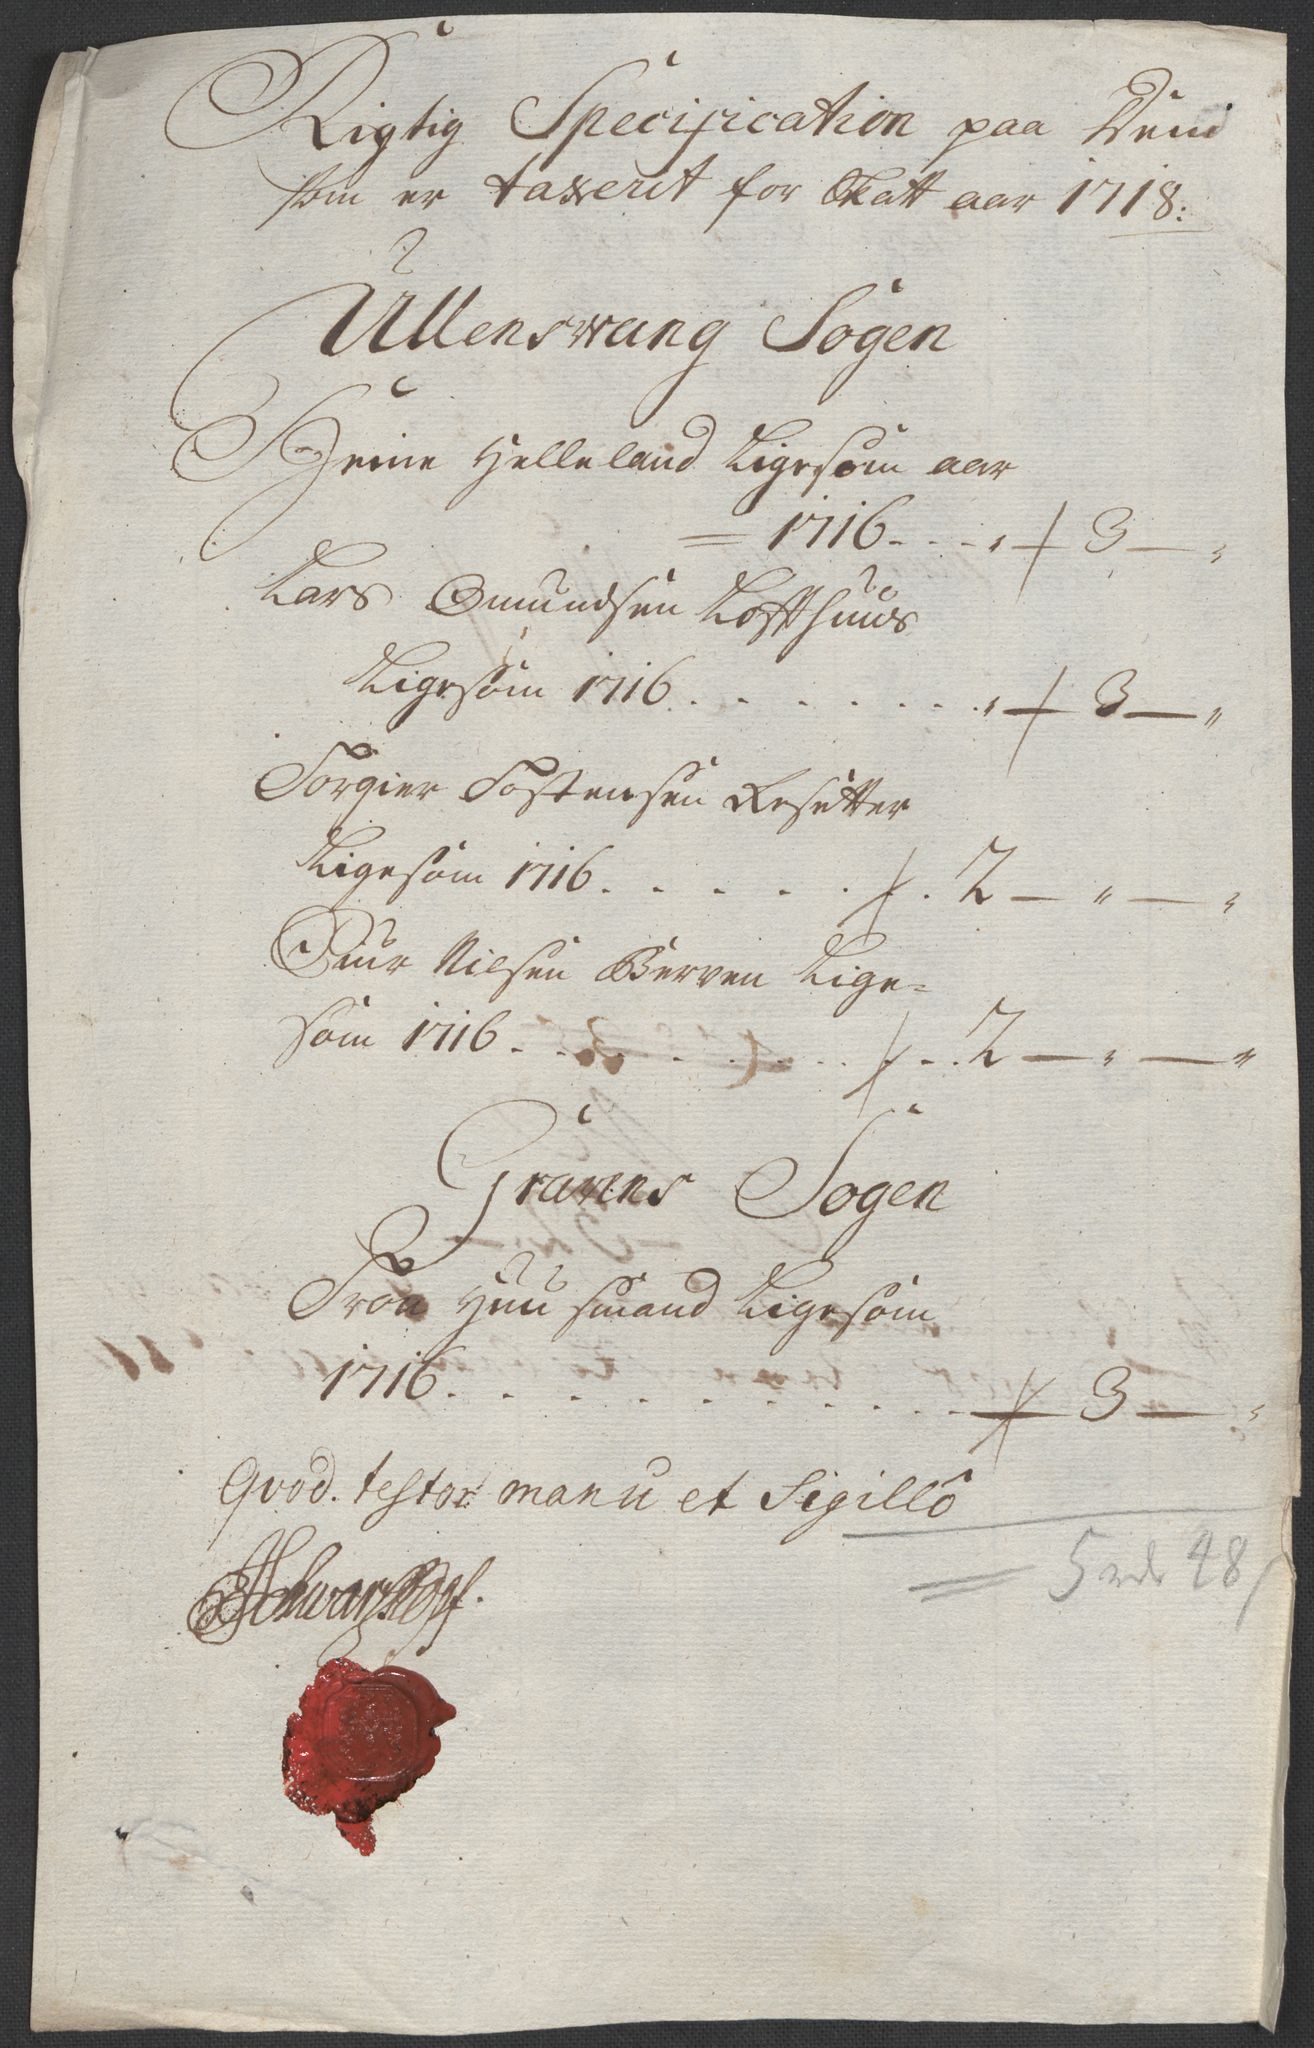 Rigtig Specification paa Dem
som er taxerit for Skatt aar 1718:
Ullenswang Sogen
Heine Helleland Ligesom aar
= 1716 . . . " 3 — "
Lars Omundsen Loffthuus
Ligesom 1716 . . . . . . . . " 3 — "
Torgier Tostensen
Ligesom 1716 . . . . . . . 2 — " — "
Siur Nilsen Berven Lige=
som 1716 . . . . . . . . . . 2 — " — "
Gravens Sogen
Tron Huusmand Ligesom
1716 . . . . . . . . . . 3 — "
Qvod. testor manu et Sigillo
= 5 rdr 48